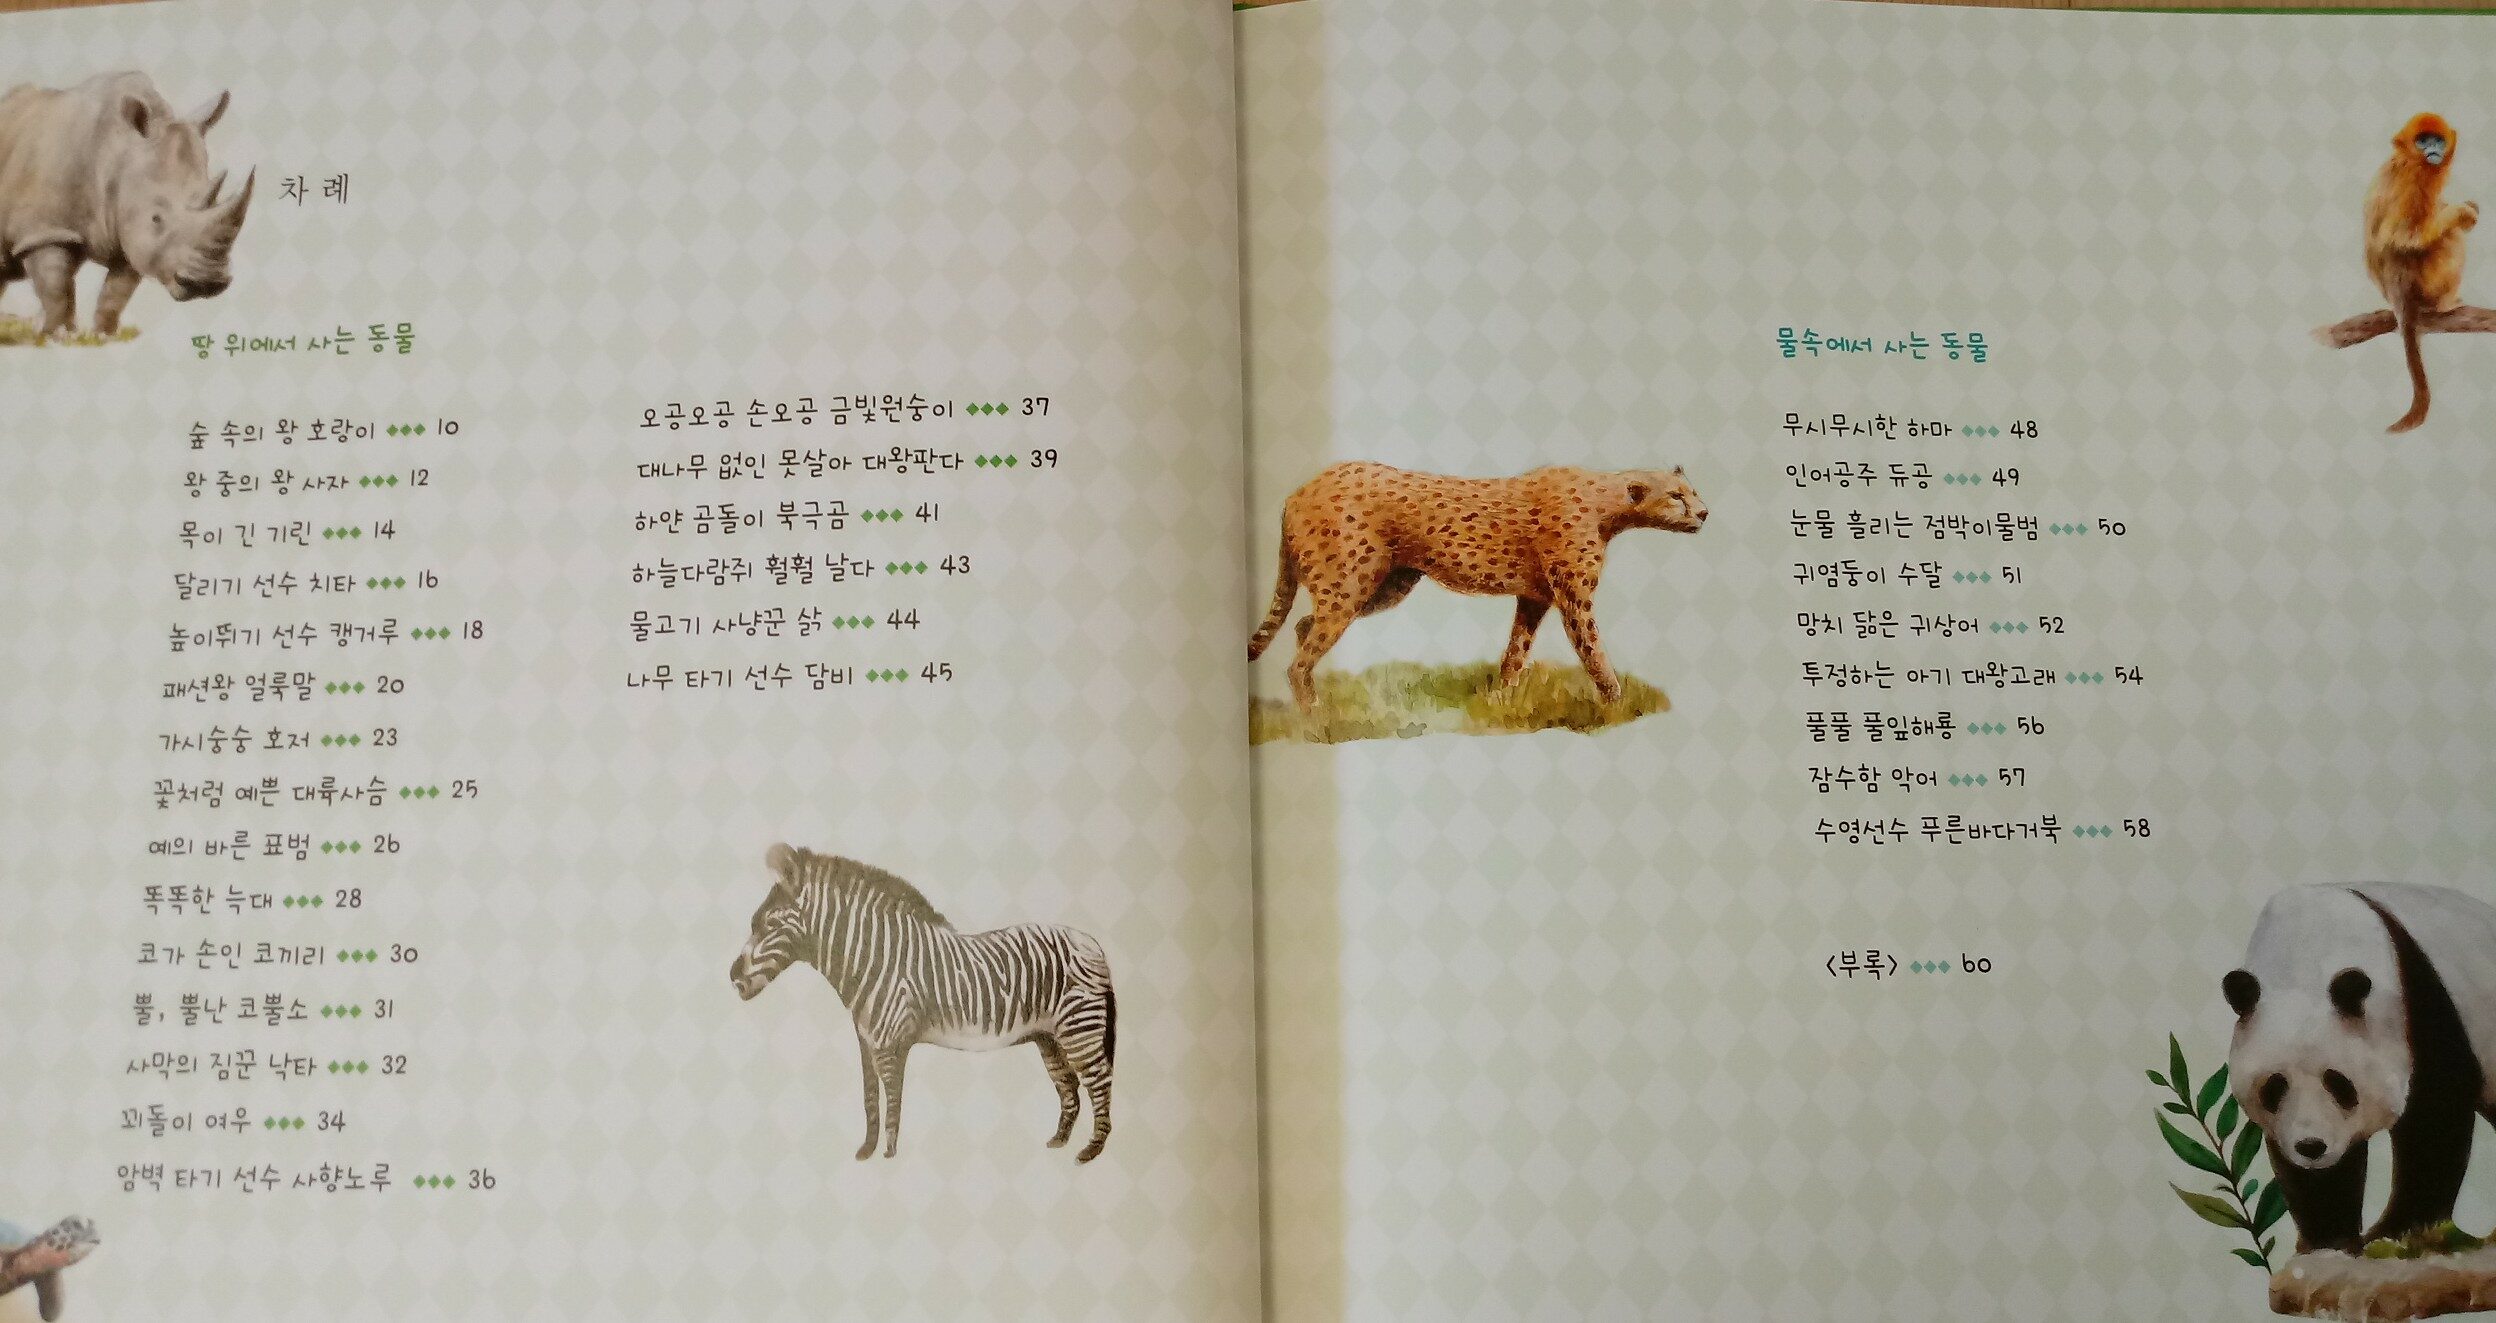 차 례
땅 위에서 사는 동물
숲 속의 왕 호랑이 ◆◆◆ 10
왕 중의 왕 사자 ◆◆◆ 12
목이 긴 기린 ◆◆◆ 14
달리기 선수 치타 ◆◆◆ 16
높이뛰기 선수 캥거루 ◆◆◆ 18
패션왕 얼룩말 ◆◆◆ 20
가시숭숭 호저 ◆◆◆ 23
꽃처럼 예쁜 대륙사슴 ◆◆◆ 25
예의 바른 표범 ◆◆◆ 26
똑똑한 늑대 ◆◆◆ 28
코가 손인 코끼리 ◆◆◆ 30
뿔, 뿔난 코뿔소 ◆◆◆ 31
사막의 짐꾼 낙타 ◆◆◆ 32
꾀돌이 여우 ◆◆◆ 34
암벽 타기 선수 사향노루 ◆◆◆ 36
오공오공 손오공 금빛원숭이 ◆◆◆ 37
대나무 없인 못살아 대왕판다 ◆◆◆ 39
하얀 곰돌이 북극곰 ◆◆◆ 41
하늘다람쥐 훨훨 날다 ◆◆◆ 43
물고기 사냥꾼 삵 ◆◆◆ 44
나무 타기 선수 담비 ◆◆◆ 45
물속에서 사는 동물
무시무시한 하마 ◆◆◆ 48
인어공주 듀공 ◆◆◆ 49
눈물 흘리는 점박이물범 ◆◆◆ 50
귀염둥이 수달 ◆◆◆ 51
망치 닮은 귀상어 ◆◆◆ 52
투정하는 아기 대왕고래 ◆◆◆ 54
풀풀 풀잎해룡 ◆◆◆ 56
잠수함 악어 ◆◆◆ 57
수영선수 푸른바다거북 ◆◆◆ 58
〈부록〉 ◆◆◆ 60